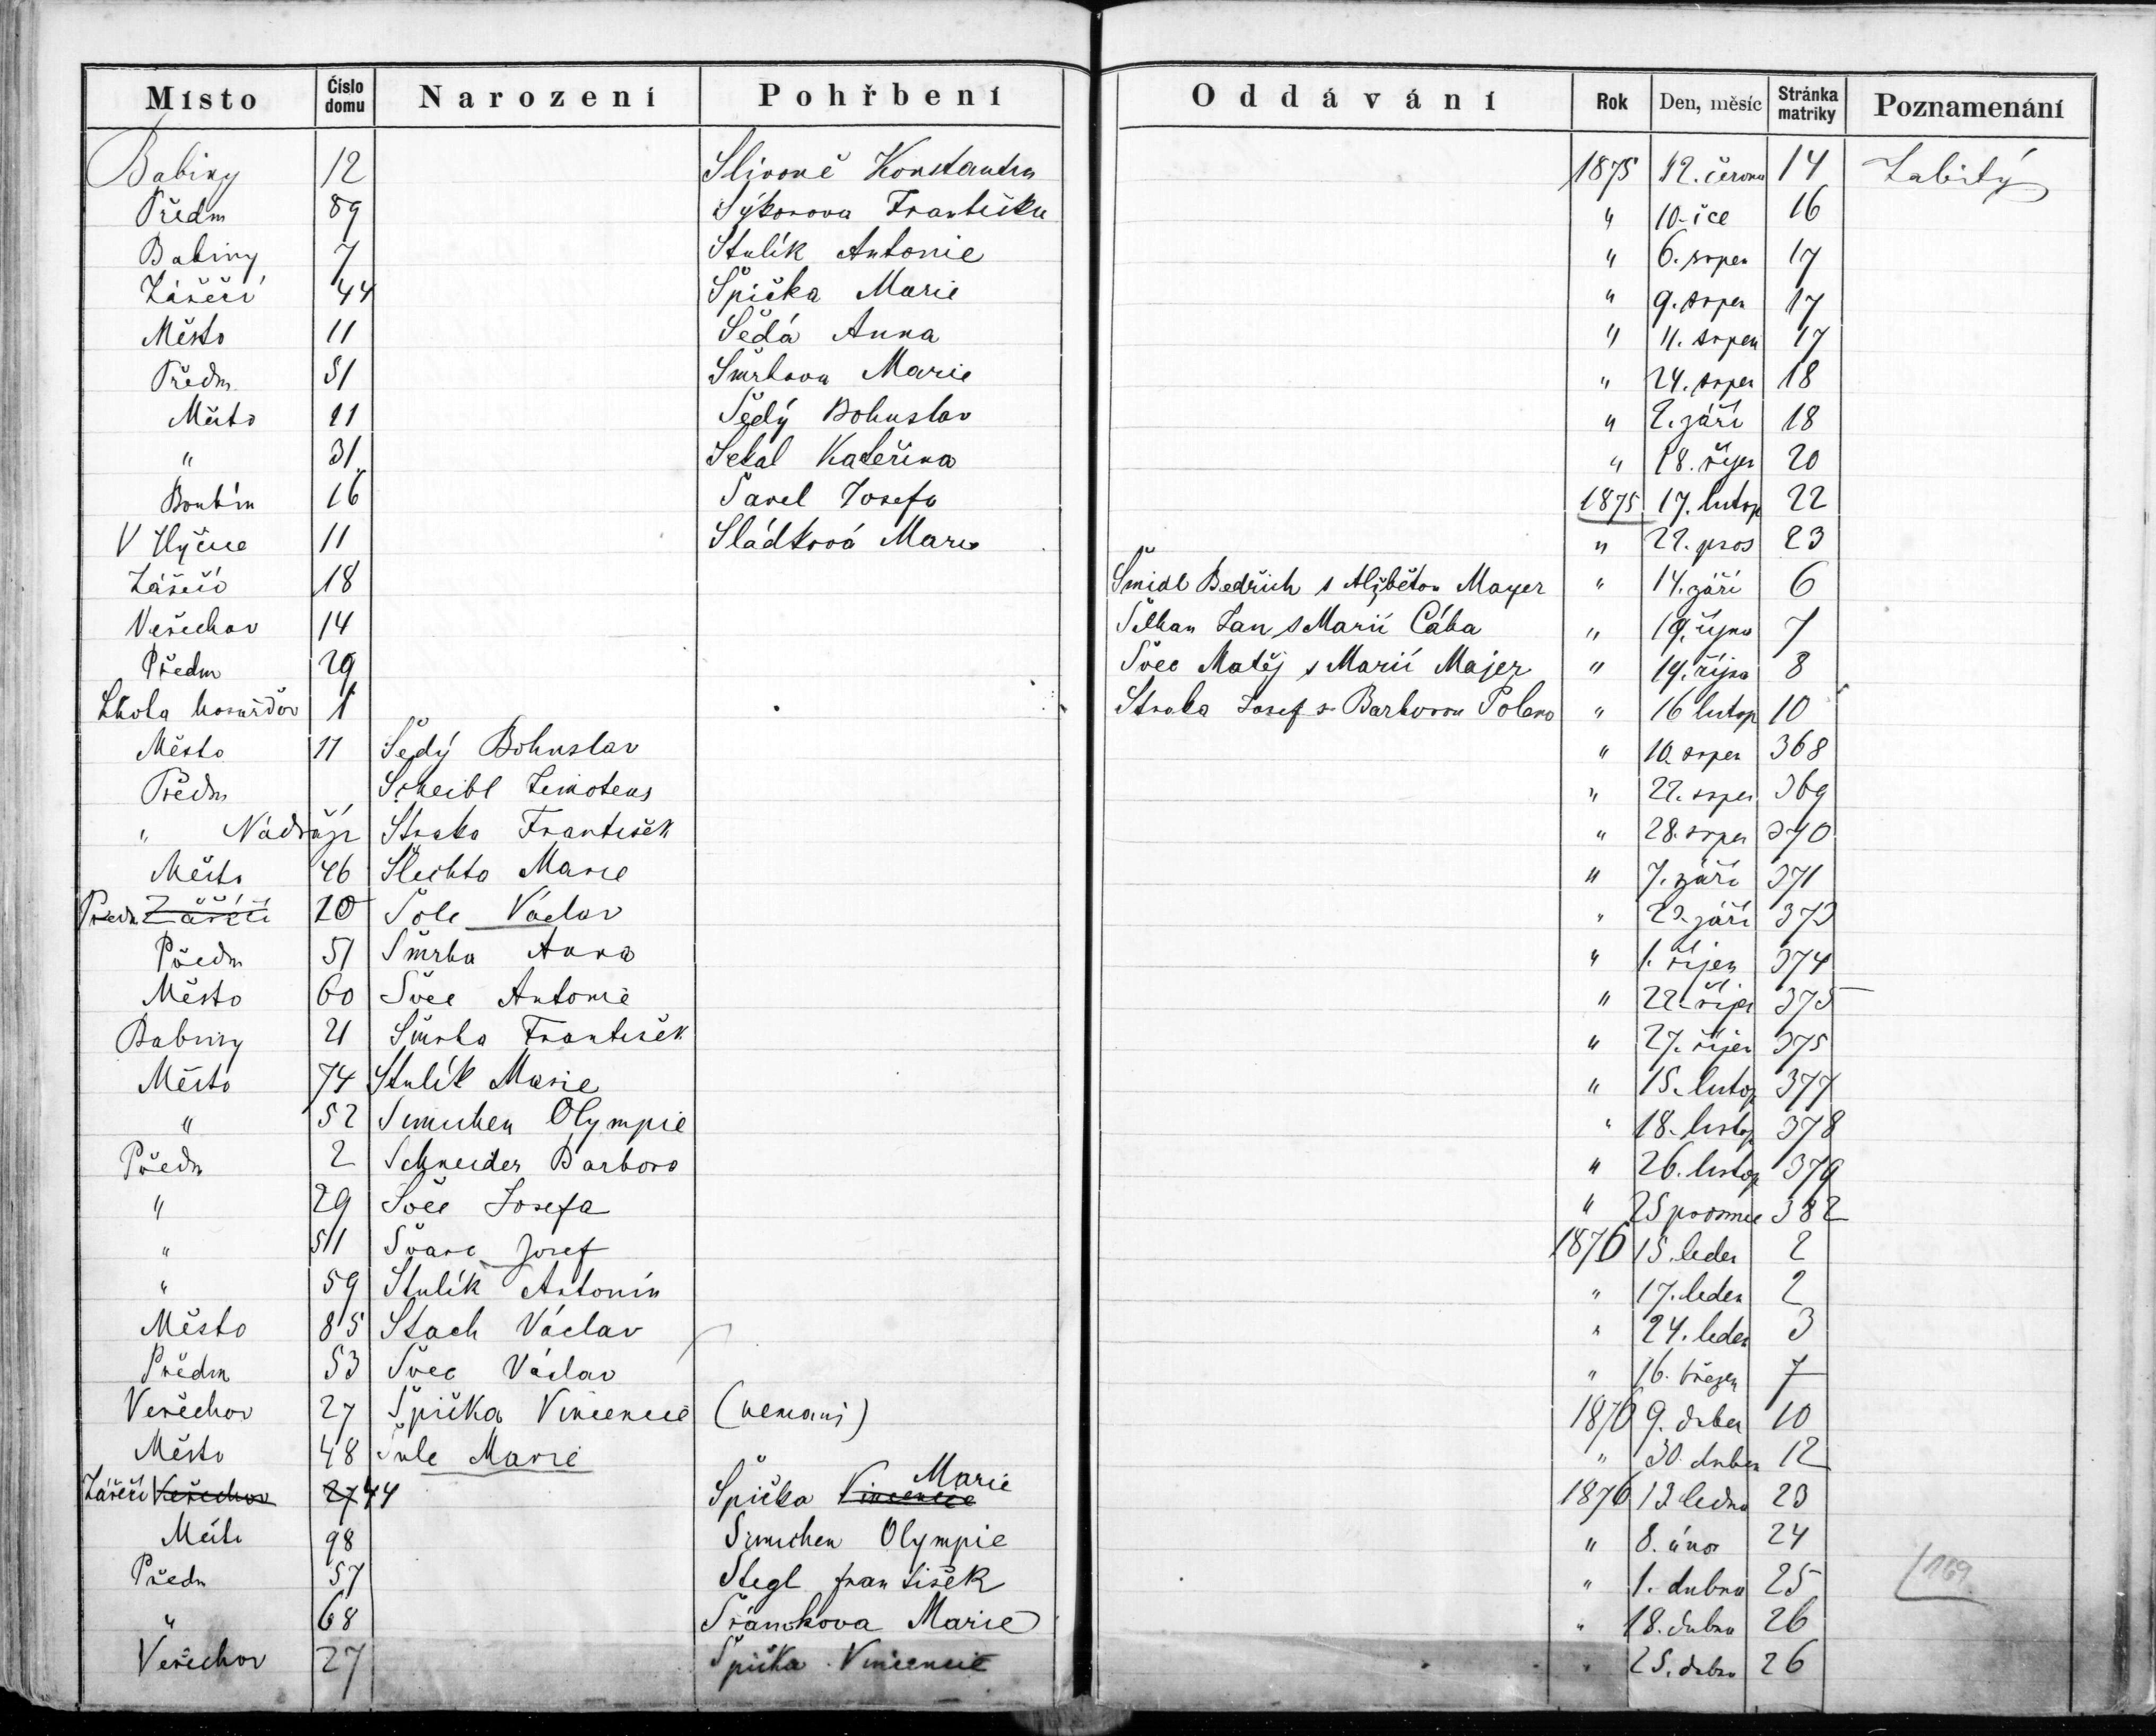 Místo Číslo domu Narození Pohřbení Oddávání Rok Den, měsíc Stránka matriky Poznamenání
Babiny 12 Slivoně Konstantin 1875 12. června 14 Zabitý
Předm 89 Sýkorova Františka " 10. 16
Babiny 7 Stulík Antonie " 6. srpen 17
Zářečí 44 Špička Marie " 9. srpen 17
Město 11 Šedá Anna " 11. srpen 17
Předm 51 Šmrhova Marie " 24. srpen 18
Město 11 Šedý Bohuslav " 2. září 18
" 31 Sekal Kateřina " 18. říjen 20
16 Josefa 1875 17. listop 22
11 Sládková Marie " 22. pros 23
Zářečí 18 Šmidl Bedřich s Alžbětou Mayer " 14. září 6
Veřechov 14 Jan s Marií Cába " 19. října 7
Předm 29 Švec Matěj s Marií Majer " 19. října 8
Lhota 1 Straka Josef s Barborou " 16 listop 10
Město 11 Šedý Bohuslav " 10. srpen 368
Předm Scheibl Timoteus " 22. srpen 369
" Nádraží Straka František " 28. srpen 370
Město 46 Šlechta Marie " 7. září 371
Předm Zářečí 20 Šole Václav " září 373
Předm 51 Šmrha Anna " 1. říjen 374
Město 60 Švec Antonie " 22. říjen 375
Babiny 21 Šmrha František " 27. říjen 375
Město 74 Stulík Marie " 15. listop 377
" 52 Olympie " 18. listop 378
Předm 2 Schneider Barbora " 26. listop 379
" 29 Švec Josefa " 25 prosince 382
" 51 Švarc Josef 1876 15. leden 2
" 59 Stulík Antonín " 17. leden 2
Město 85 Stach Václav " 24. leden 3
Předm 53 Švec Václav " 16. březen 7
Veřechov 27 Špička Vincencie (nemanž) 1876 9. duben 10
Město 48 Šule Marie " 30. duben 12
Zářečí Veřechov 27 44 Špička Vincencie Marie 1876 13. ledna 23
Město 98 Olympie " 8. únor 24
Předm 57 Stegl František " 1. dubna 25
" 68 Šrámkova Marie " 18. dubna 26
Veřechov 27 Špička Vincencie " 25. dubna 26
169